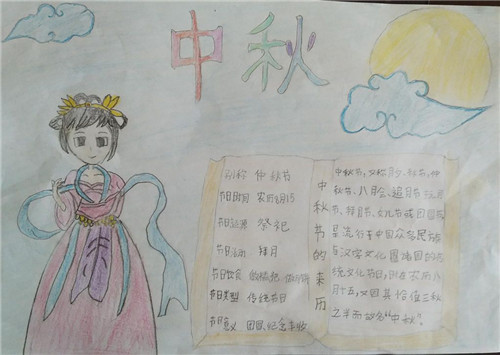 中秋
别称 仲秋节
节日时间 农历8月15
节日起源 祭祀
节日活动 拜月
节日饮食
节日类型 传统节日
节日意义 团圆、纪念、丰收
中秋节的来历
中秋节,又称月夕、秋节、仲
秋节、八月会、追月节、玩月
节、拜月节、女儿节或团圆节,
是流行于中国众多民族
与汉字文化圈诸国的传
统文化节日,时在农历八
月十五;又因其恰值三秋
之半而故名“中秋”。